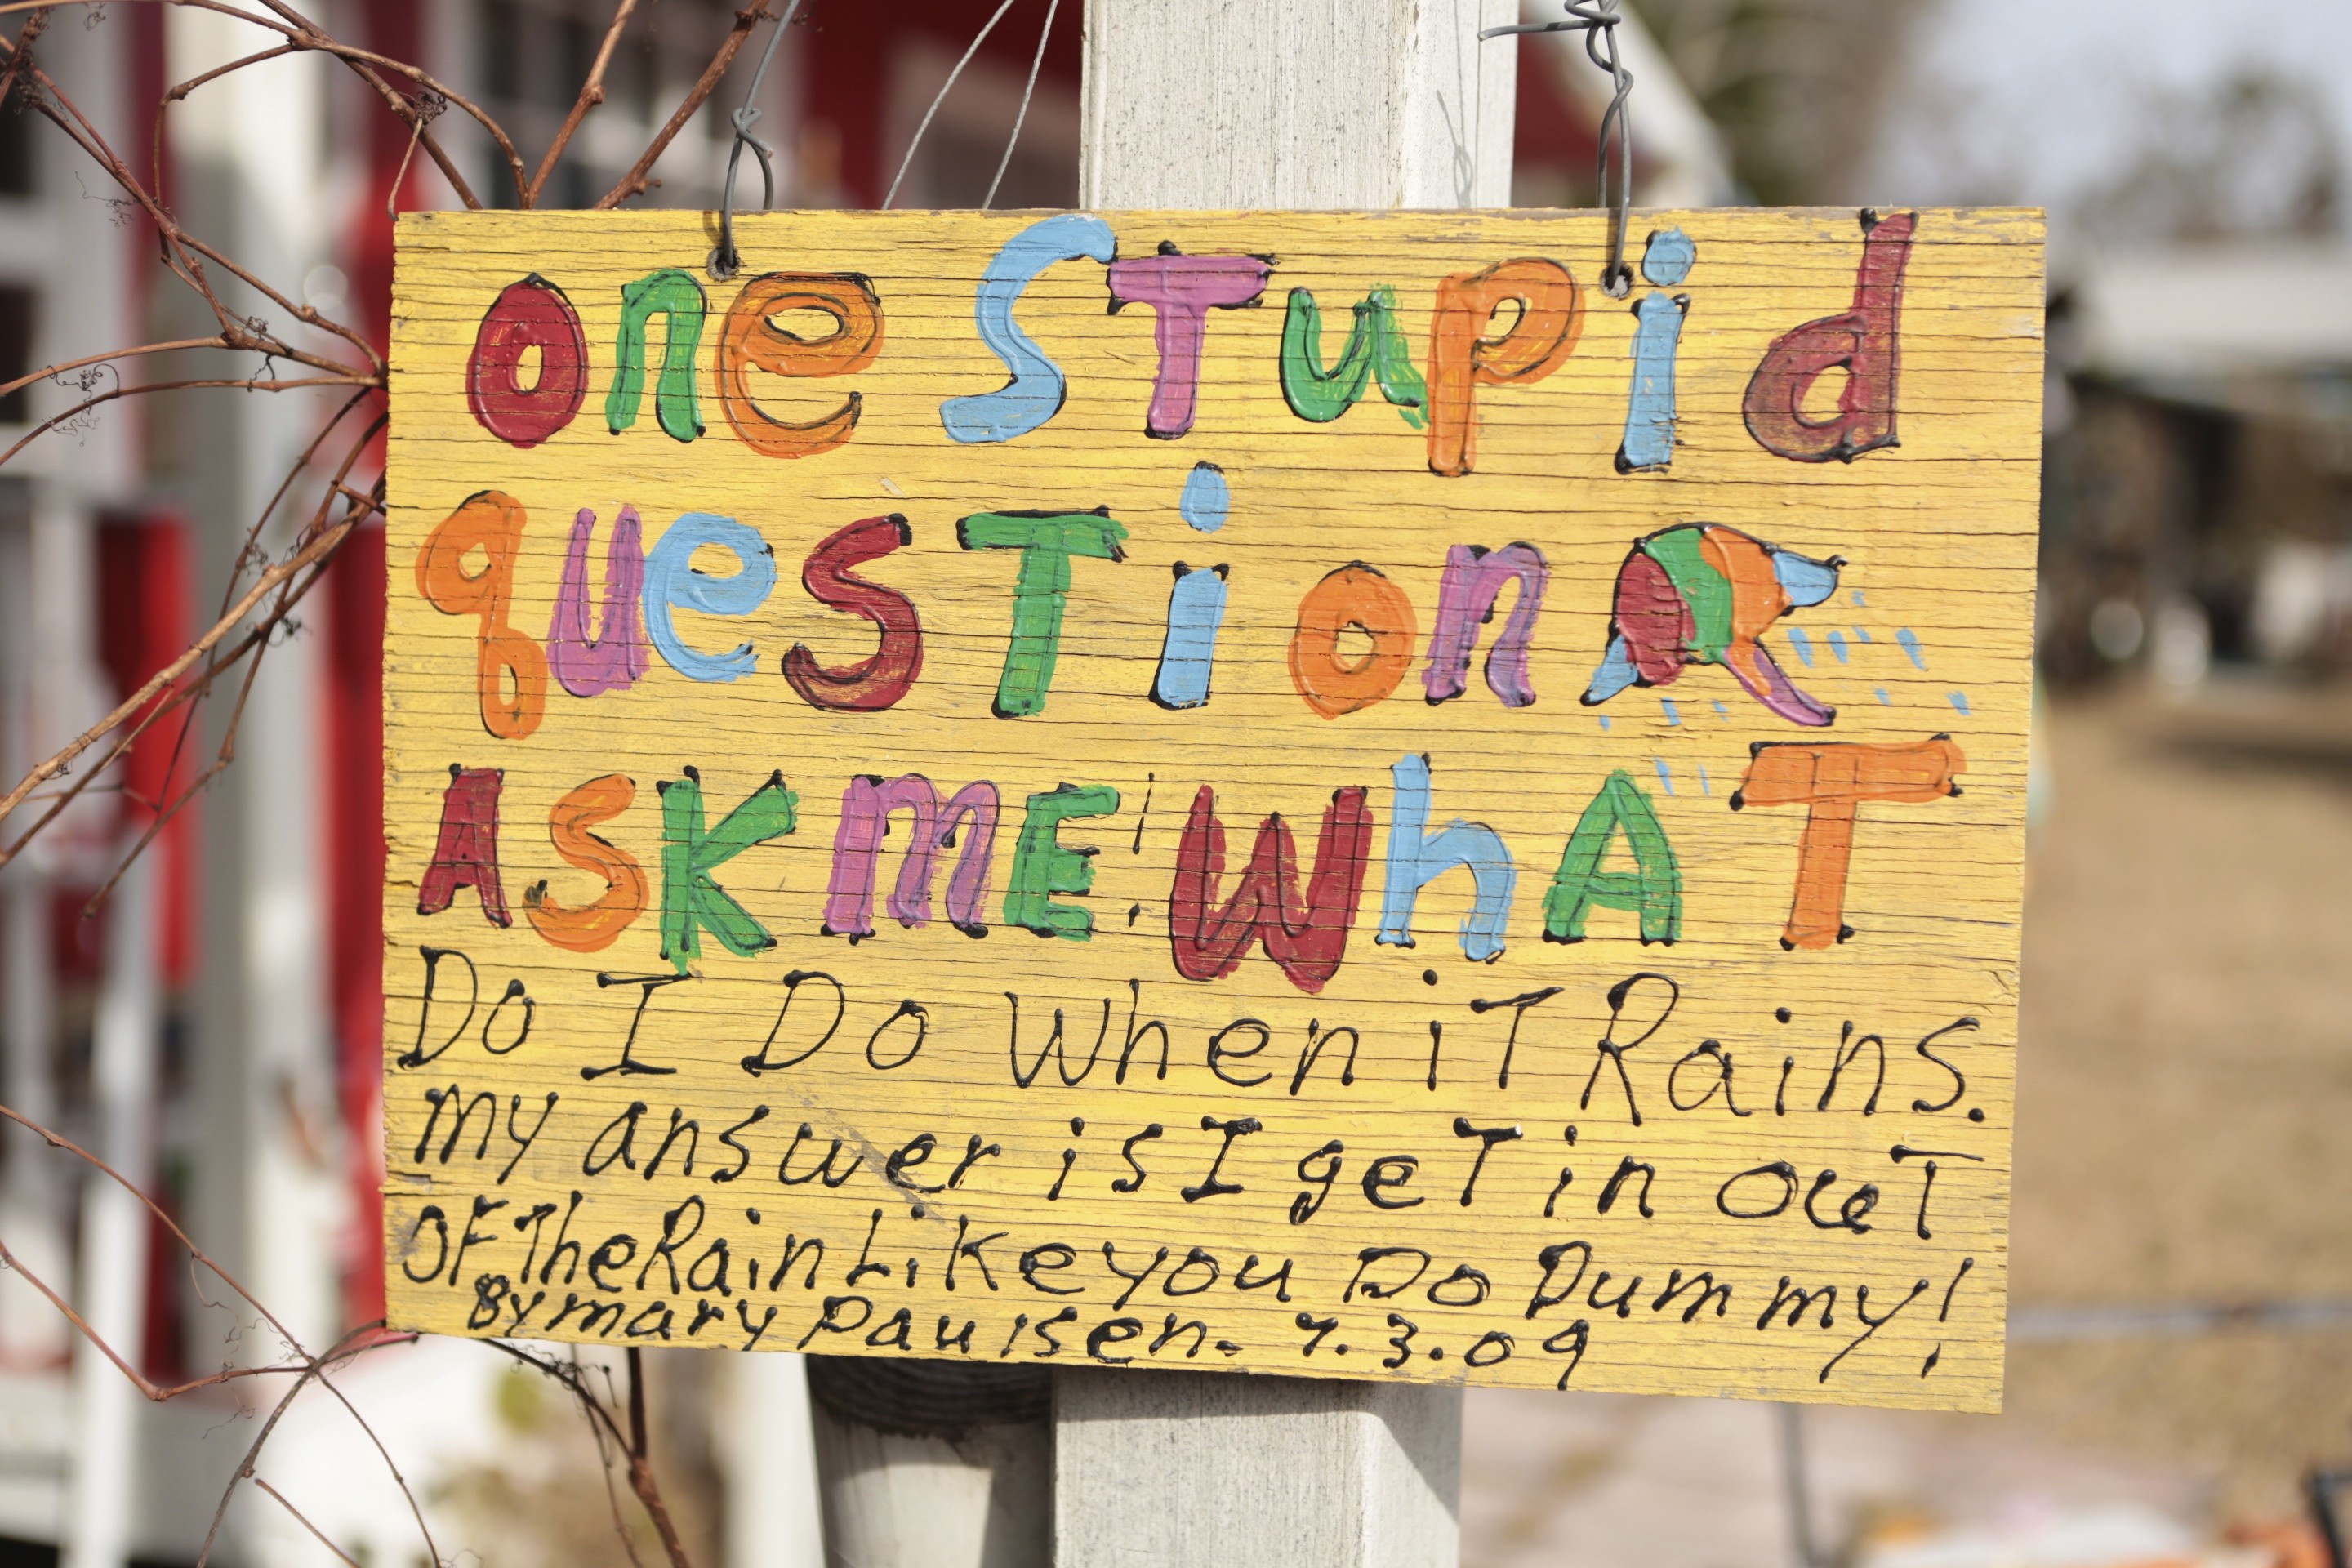 one STupid
quesTion
ASK mE! WhAT
Do I Do When iT Rains.
my answer is I geT in ouT
OF The Rain Like you Do Dummy!
By mary Paulsen. 7.3.09